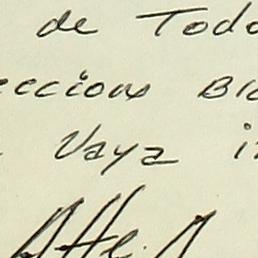 de Todo
ecciones Bla
Vaya i
Atte.